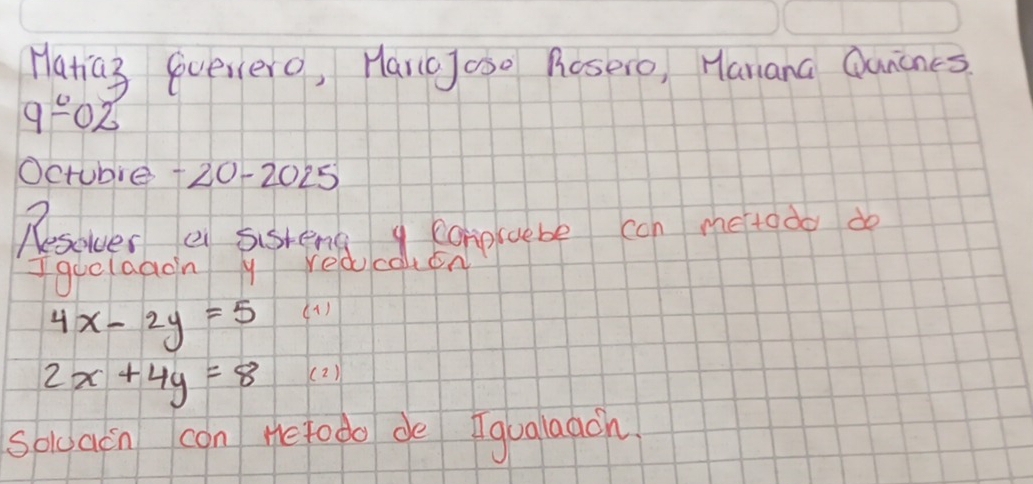 Matiaz Guerrero, MariaJose Rosero, Mariana Quiñones.
9º-02
Octubre - 20 - 2025
Resolver el sistema y compruebe con metodo de
Igualación y reducción
4x - 2y = 5 (1)
2x + 4y = 8 (2)
Solución con Metodo de Igualación.